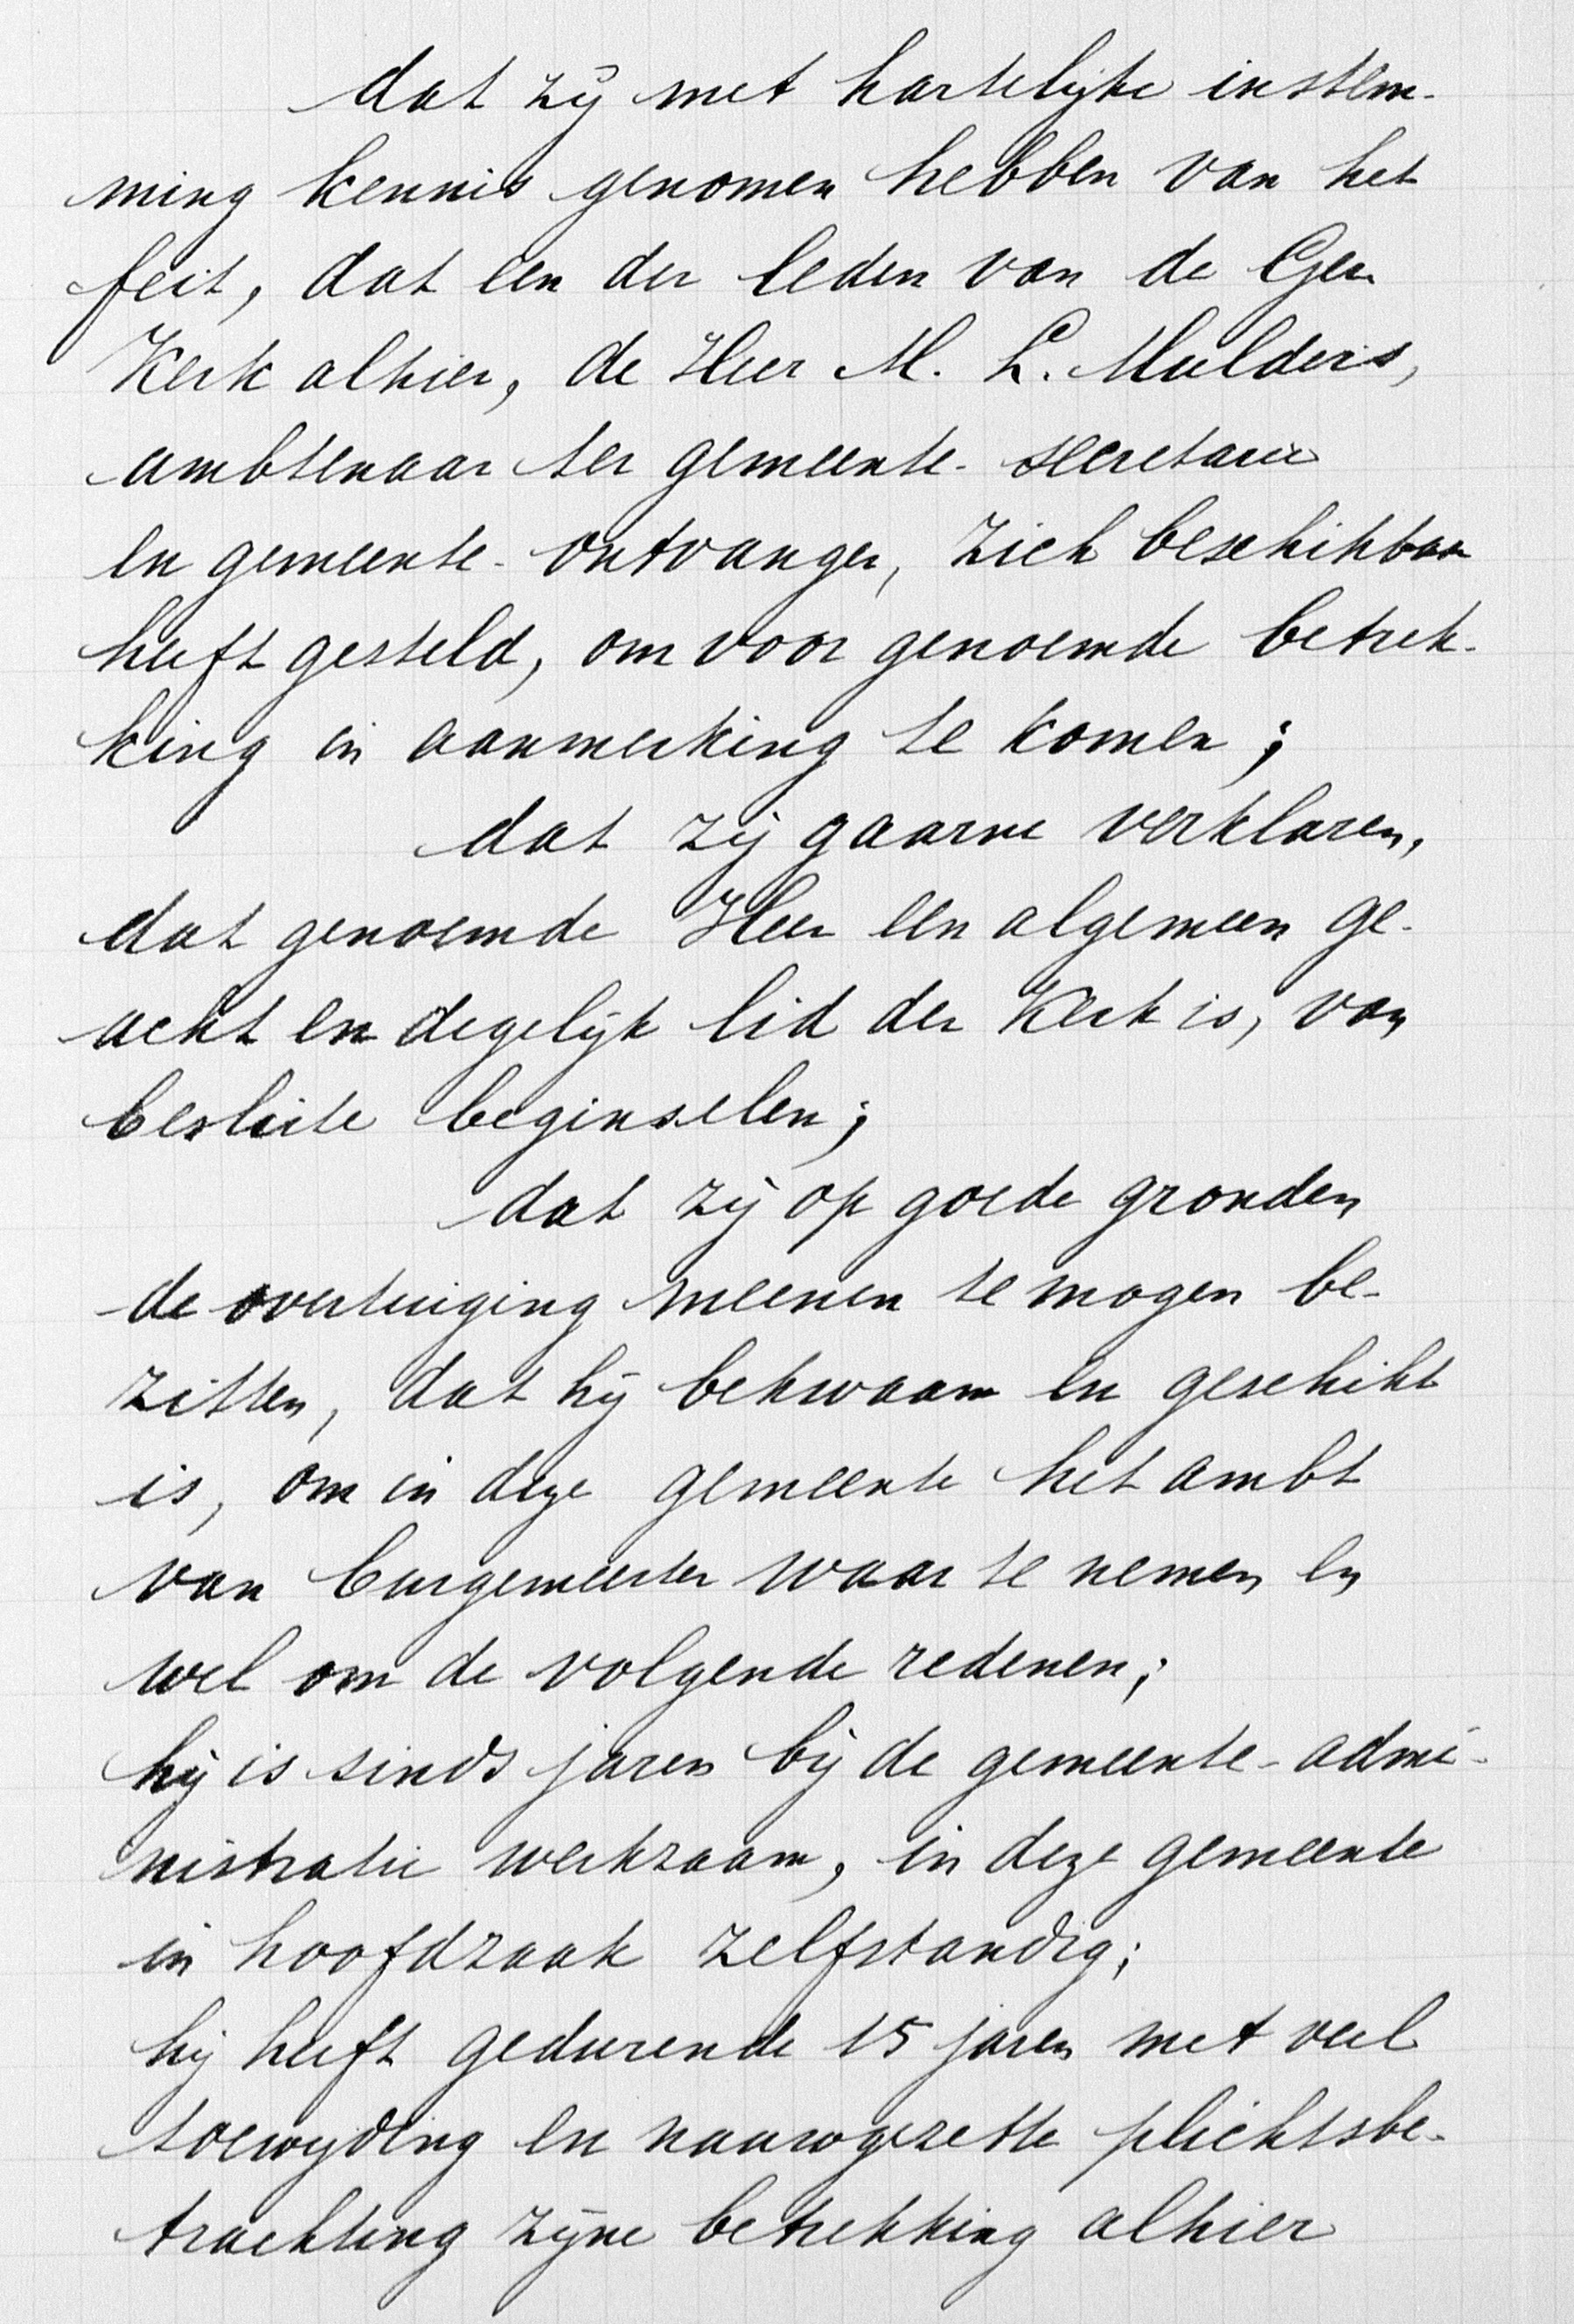 dat zij met hartelijke instem-
ming kennis genomen hebben van het
feit, dat een der leden van de Ger.
Kerk alhier, de Heer M. L. Mulders,
ambtenaar ter gemeente-secretarie
en gemeente-ontvanger, zich beschikbaar
heeft gesteld, om voor genoemde betrek-
king in aanmerking te komen;
dat zij gaarne verklaren,
dat genoemde Heer een algemeen ge-
acht en degelijk lid der Kerk is, van
besliste beginselen;
dat zij op goede gronden
de overtuiging meenen te mogen be-
zitten, dat hij bekwaam en geschikt
is, om in deze gemeente het ambt
van burgemeester waar te nemen en
wel om de volgende redenen;
hij is sinds jaren bij de gemeente-admi-
nistratie werkzaam, in deze gemeente
in hoofdzaak zelfstandig;
hij heeft gedurende 15 jaren met veel
toewijding en nauwgezette plichtsbe-
trachting zijne betrekking alhier